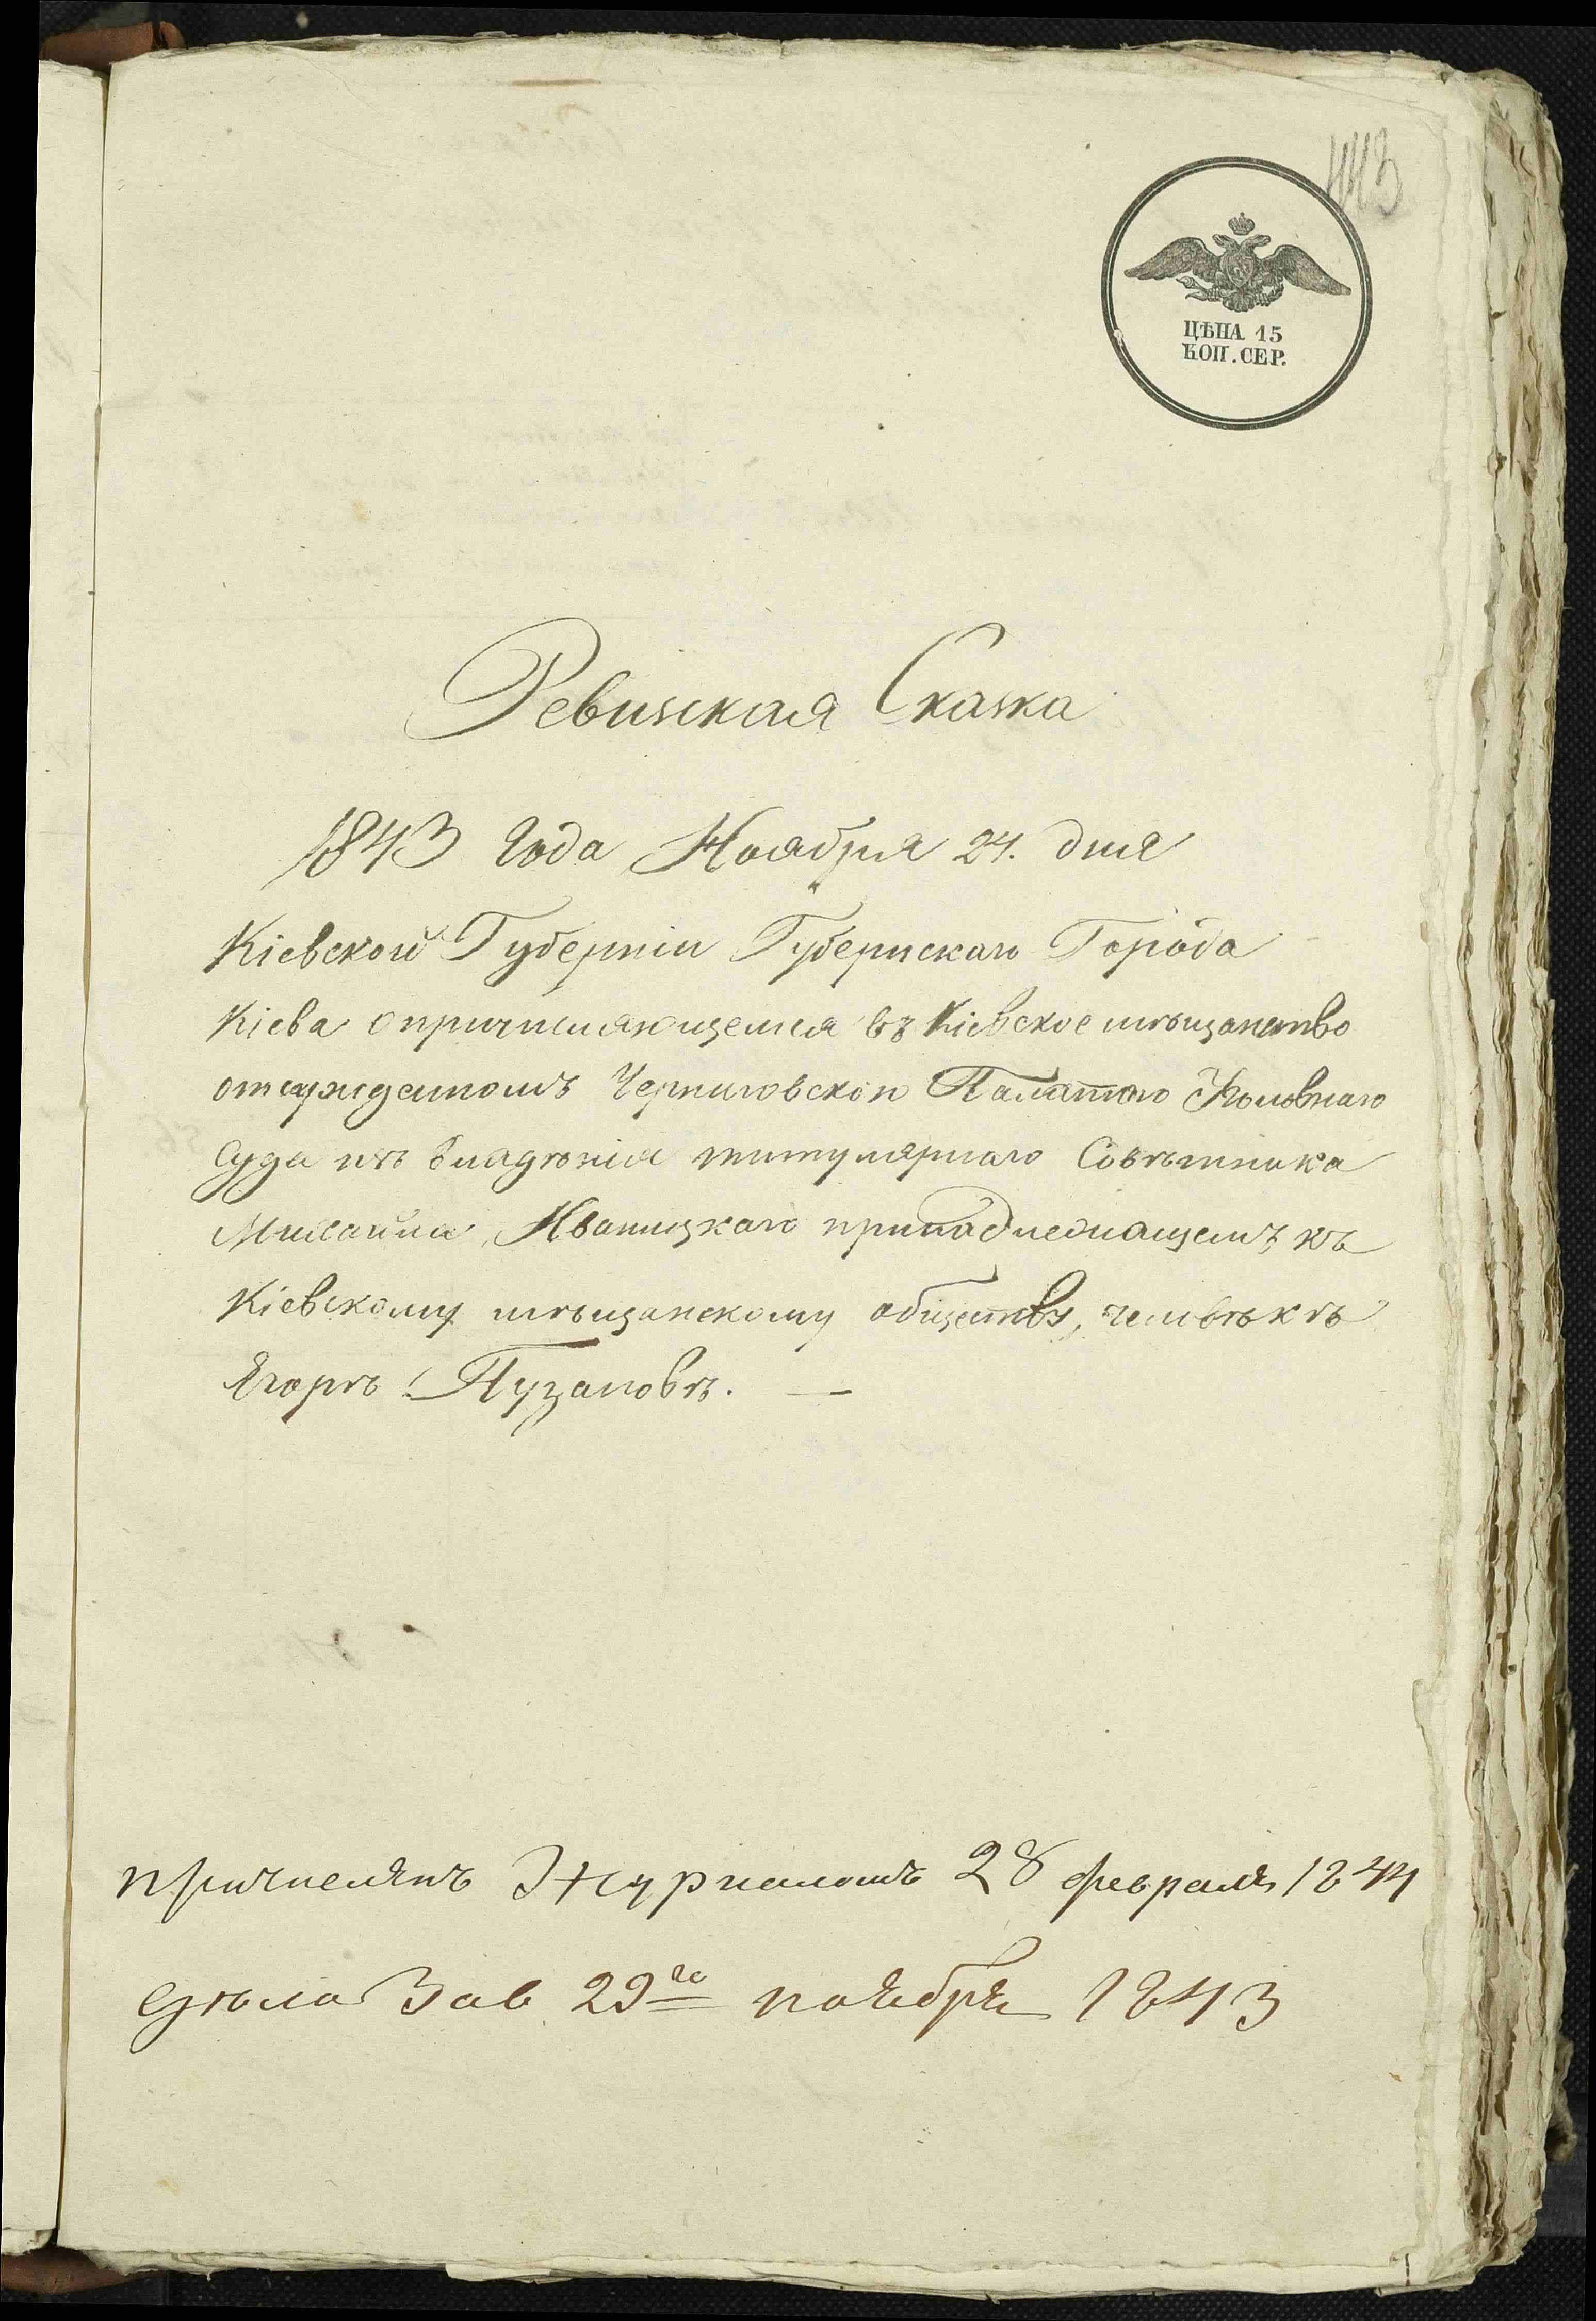 443
ЦѢНА 15
КОП. СЕР.
Ревизская Сказка
1843 Года Ноября 24. дня
Кіевской Губерніи Губернскаго Города
Кіева опричисляющемся въ Кіевское мѣщанство
отсужденномъ Черниговскою Палатою Уголовнаго
Суда изъ владѣнія титулярнаго Совѣтника
Михаила Иваницкаго принадлежащемъ къ
Кіевскому мѣщанскому обществу, человѣкѣ
Ягорѣ Пузановѣ. —
причисленъ Журналомъ 28 февраля 1844
дѣло Зав 29го ноября 1843